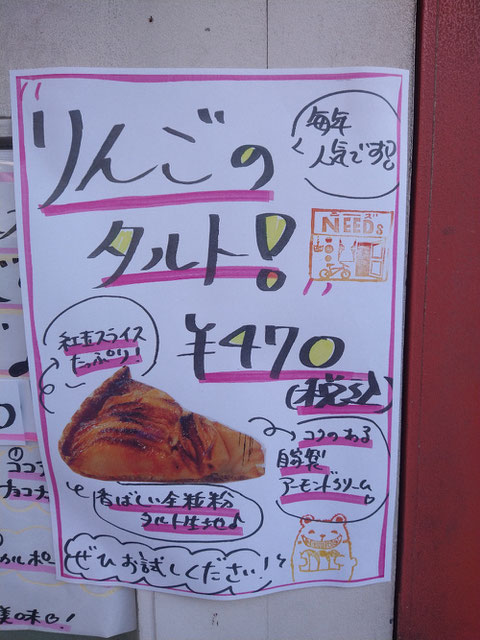 毎年
人気です!!
"りんごの
タルト!"
ニーズ
NEEDS
紅玉スライス
たっぷり!
¥470
(税込)
コクのある
自家製
アーモンドクリーム
香ばしい全粒粉
タルト生地♪
ぜひお試しください!
ココナ
チョコナ
カルボ
美味